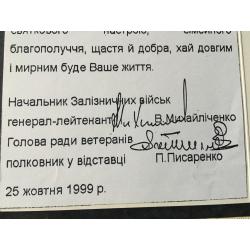 святкового настрою, сімейного
благополуччя, щастя й добра, хай довгим
і мирним буде Ваше життя.
Начальник Залізничних військ
генерал-лейтенант В.Михайліченко
Голова ради ветеранів
полковник у відставці П.Писаренко
25 жовтня 1999 р.